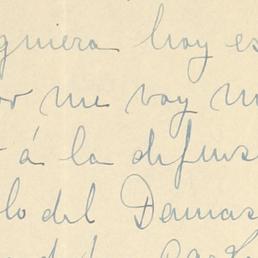 quiera hoy es
or me voy m
á la difus
lo del Damas